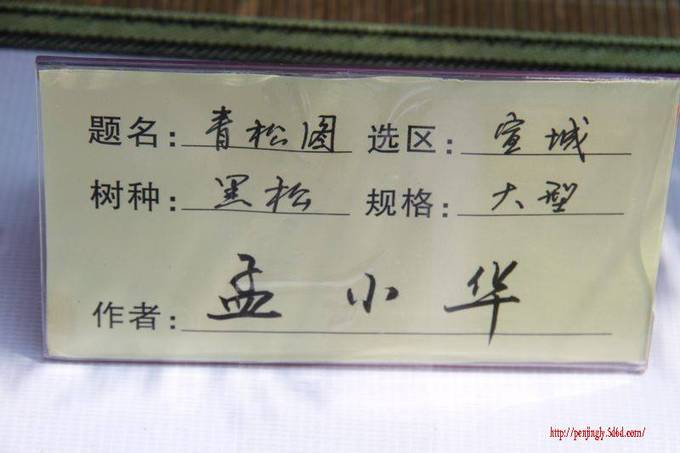 题名：青松图 选区：宣城
树种：黑松 规格：大型
作者：孟小华
http://penjingly.5d6d.com/